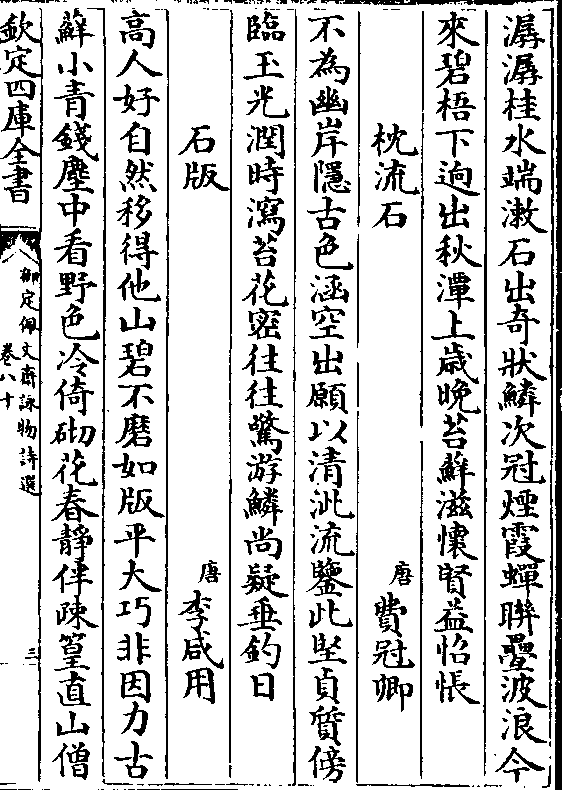 潺潺桂水端漱石出奇狀鱗次冠煙霞蟬聯疊波浪今
來碧梧下逈出秋潭上歲晚苔蘚滋懷賢益怊悵
枕流石
唐
費冠卿
不為幽岸隱古色涵空出願以清泚流鑒此堅貞質傍
臨玉光潤時瀉苔花密往往驚游鱗尚疑垂釣日
石版
唐
李咸用
高人好自然移得他山碧不磨如版平大巧非因力古
蘚小青錢塵中看野色冷倚砌花春靜伴疎篁直山僧
欽定四庫全書
御定佩文齋詠物詩選
卷八十
三